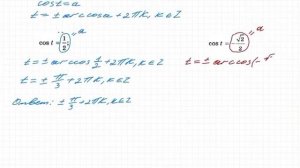 cos t = a
t = ± arccos a + 2πk, k ∈ Z
cos t = 1/2 " a
t = ± arccos 1/2 + 2πk, k ∈ Z
t = ± π/3 + 2πk, k ∈ Z
Ответ: ± π/3 + 2πk, k ∈ Z
cos t = -√2/2 " a
t = ± arccos(-